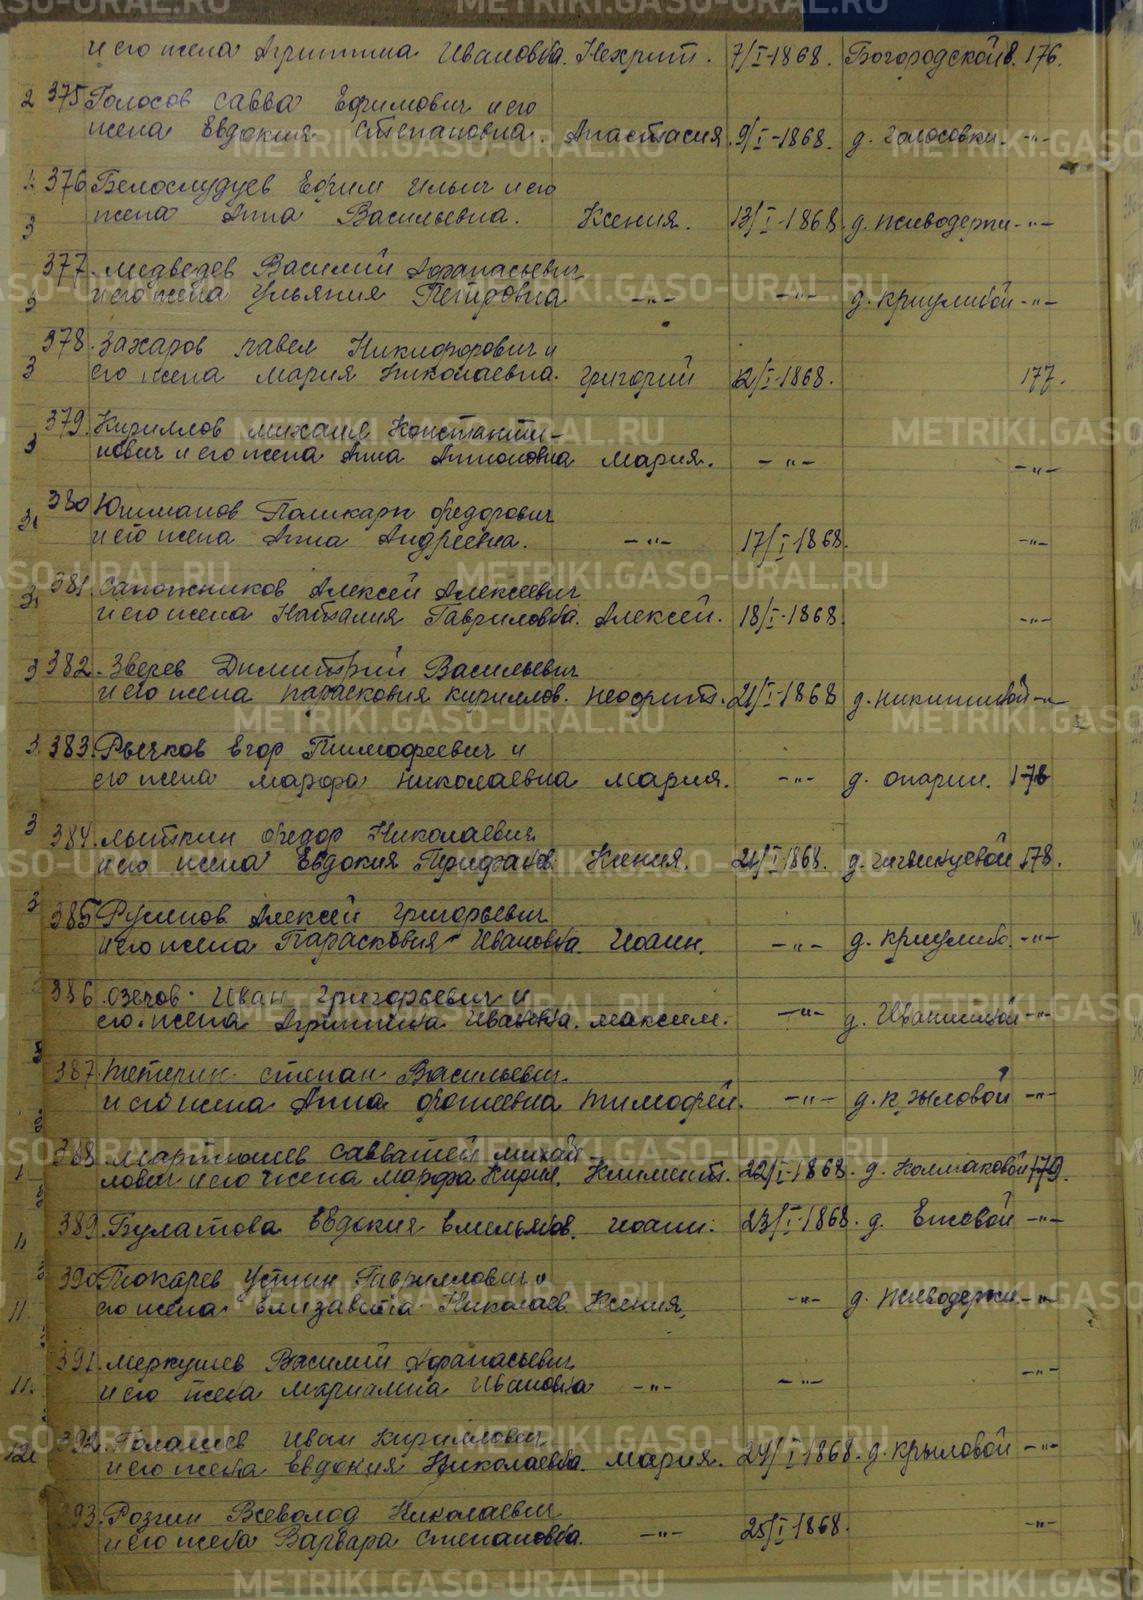 и его жена Агриппина Ивановна. Нехрит. 7/I-1868. Богородской в. 176.
375 Голосов Савва Ефимович и его
жена Евдокия Степановна. Анастасия. 9/I-1868. д. Голосовки. -"-
376 Белослудцев Ефим Ильич и его
жена Анна Васильевна. Ксения. 13/I-1868. д. Живодерки -"-
377. Медведев Василий Афанасьевич
и его жена Ульяния Петровна -"- -"- д. Криулиной -"-
378. Захаров Павел Никифорович и
его жена Мария Николаевна. Григорий 12/I-1868. 177.
379. Кириллов Михаил Константи-
нович и его жена Анна Антоновна Мария. -"- -"-
380 Юшманов Поликарп Федорович
и его жена Анна Андреевна. -"- 17/I-1868. -"-
381. Сапожников Алексей Алексеевич
и его жена Наталия Гавриловна. Алексей. 18/I-1868. -"-
382. Зверев Димитрий Васильевич
и его жена Парасковия Кириллов. Неофит. 21/I-1868 -"-
383. Рычков Егор Тимофеевич и
его жена Марфа Николаевна Мария. -"- д. Опарин. 178
384. Лыткин Федор Николаевич
и его жена Евдокия Ксения. 21/I-1868. 178.
385 Русинов Алексей Григорьевич
и его жена Парасковия Ивановна. Иоанн. -"- д. Криулино. -"-
386. Озегов Иван Григорьевич и
его жена Агриппина Ивановна. Максим. -"- -"-
387. Тетерин Степан Васильевич
и его жена Анна Фотеевна Тимофей. -"- д. Крыловой -"-
388. Мартюшев Савватей Михай-
лович и его жена Марфа Кирил. Климент. 22/I-1868. д. Колмаковой 179.
389. Булатова Евдокия Емельянов. Иоанн. 23/I-1868. д. Ежевой -"-
390. Токарев Устин Гаврилович и
его жена Елизавета Николаев. Ксения. -"- д. Живодерки. -"-
391. Меркушев Василий Афанасьевич
и его жена Мариамна Ивановна -"- -"- -"-
392. Голашев Иван Кириллович
и его жена Евдокия Николаевна. Мария. 24/I-1868. д. Крыловой -"-
393. Розгин Всеволод Николаевич
и его жена Варвара Степановна. -"- 25/I-1868. -"-
METRIKI.GASO-URAL.RU